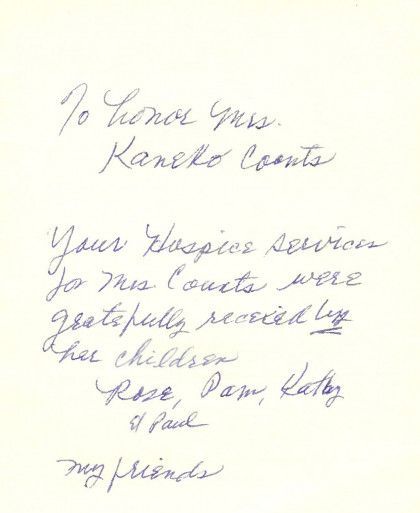 To honor Mrs.
Kaneko Coonts
Your Hospice services
for Mrs Counts were
gratefully received by
her children
Rose, Pam, Kathy
& Paul
my friends